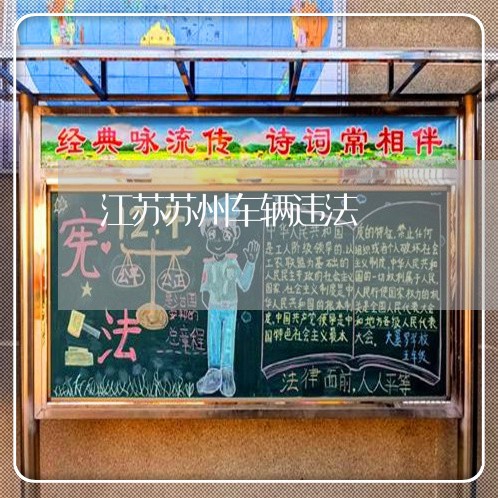 经典咏流传 诗词常相伴
江苏苏州车辆违法
12.4
宪
法
公平
公正
总章程
中华人民共和国
是工人阶级领导的,以
工农联盟为基础的
人民民主专政的社会主义
国家,社会主义制度是中
华人民共和国的根本制
度,中国共产党领导是中
国特色社会主义最本
质的特征,禁止任何
组织或者个人破坏社会
主义制度,中华人民共和
国的一切权利属于人民,
人民行使国家权力的机
关是全国人民代表大会
和地方各级人民代表
大会。
五年级
法律面前,人人平等